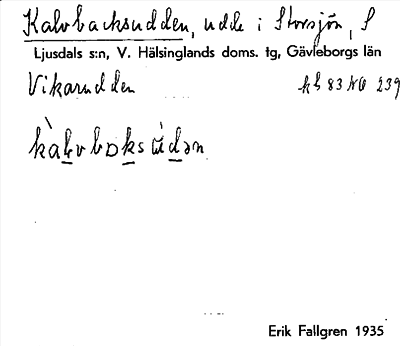 Kalvbacksudden, udde i Storsjön, S
Ljusdals s:n, V. Hälsinglands doms. tg, Gävleborgs län
Vikarudden kb 83 NO 239
Erik Fallgren 1935